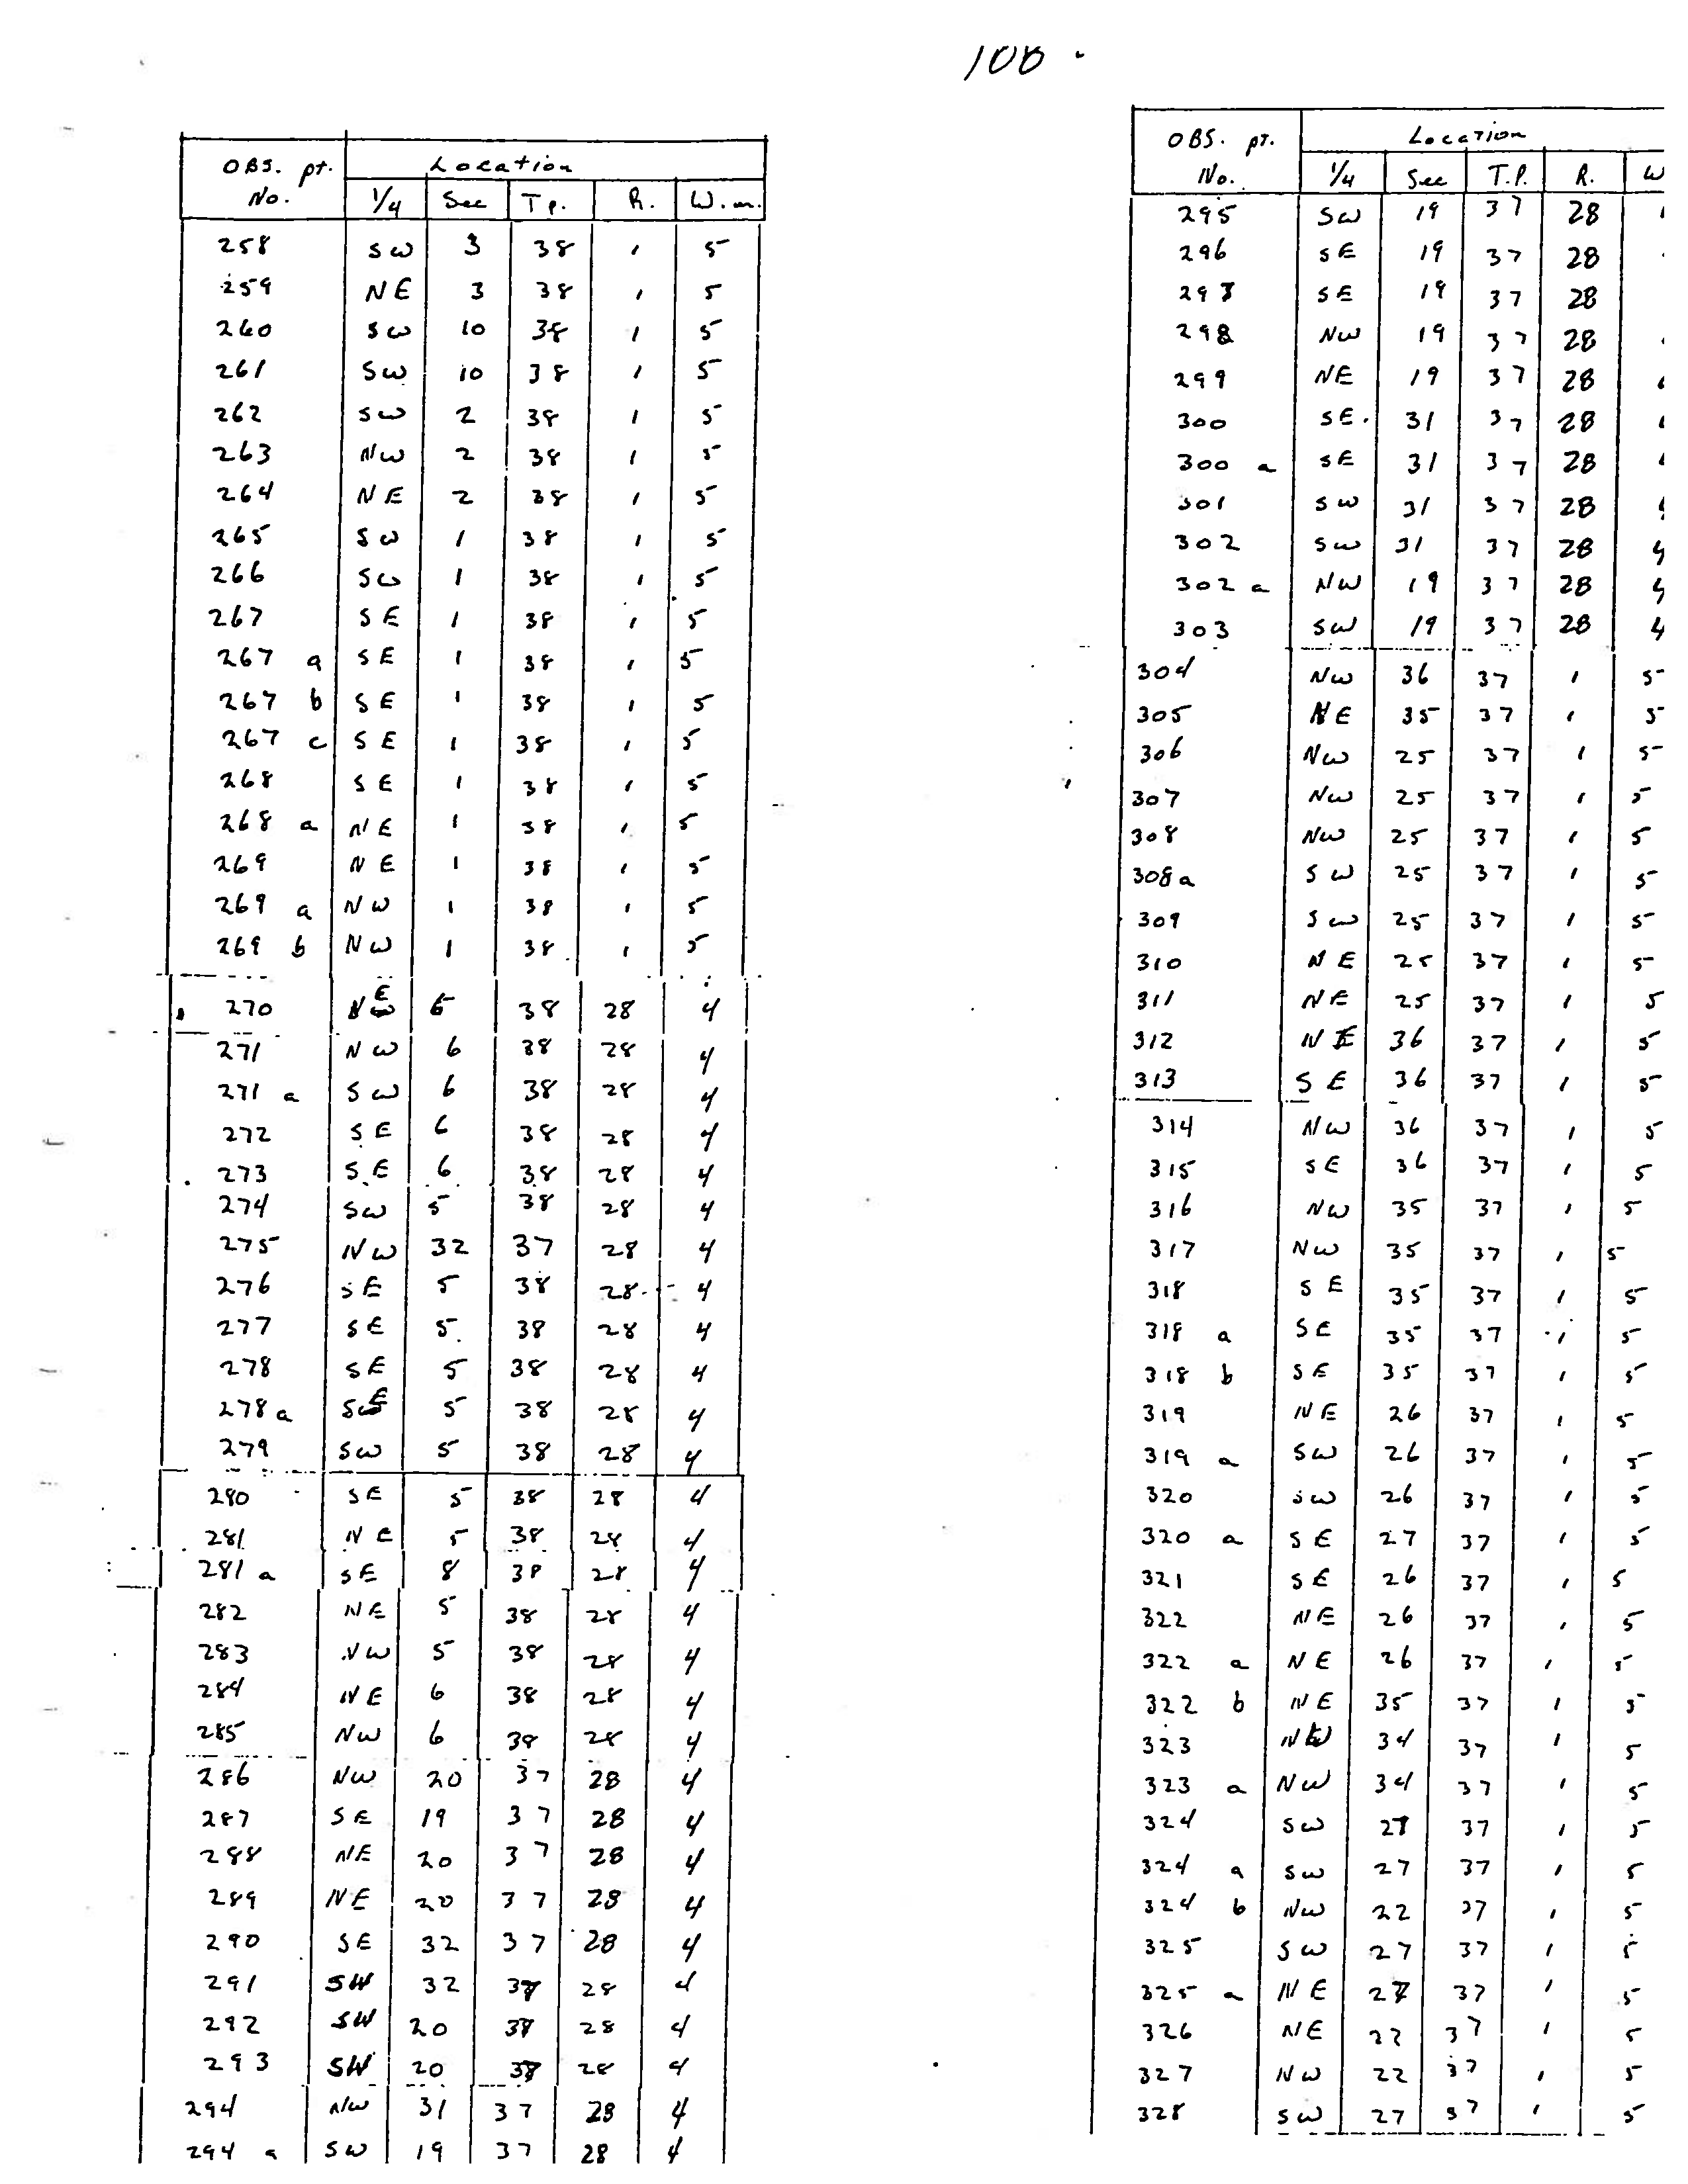 100
OBS. pt. No. Location
1/4 Sec Tp. R. W.m.
258 SW 3 38 1 5
259 NE 3 38 1 5
260 SW 10 38 1 5
261 SW 10 38 1 5
262 SW 2 38 1 5
263 NW 2 38 1 5
264 NE 2 38 1 5
265 SW 1 38 1 5
266 SW 1 38 1 5
267 SE 1 38 1 5
267 a SE 1 38 1 5
267 b SE 1 38 1 5
267 c SE 1 38 1 5
268 SE 1 38 1 5
268 a NE 1 38 1 5
269 NE 1 38 1 5
269 a NW 1 38 1 5
269 b NW 1 38 1 5
270 NE 6 38 28 4
271 NW 6 38 28 4
271 a SW 6 38 28 4
272 SE 6 38 28 4
273 SE 6 38 28 4
274 SW 5 38 28 4
275 NW 32 37 28 4
276 SE 5 38 28 4
277 SE 5 38 28 4
278 SE 5 38 28 4
278 a SE 5 38 28 4
279 SW 5 38 28 4
280 SE 5 38 28 4
281 NE 5 38 28 4
281 a SE 8 38 28 4
282 NE 5 38 28 4
283 NW 5 38 28 4
284 NE 6 38 28 4
285 NW 6 38 28 4
286 NW 20 37 28 4
287 SE 19 37 28 4
288 NE 20 37 28 4
289 NE 20 37 28 4
290 SE 32 37 28 4
291 SW 32 37 28 4
292 SW 20 37 28 4
293 SW 20 37 28 4
294 NW 31 37 28 4
294 a SW 19 37 28 4
OBS. pt. No. Location
1/4 Sec T.P. R. W
295 SW 19 37 28
296 SE 19 37 28
297 SE 19 37 28
298 NW 19 37 28
299 NE 19 37 28
300 SE. 31 37 28
300 a SE 31 37 28
301 SW 31 37 28 4
302 SW 31 37 28 4
302 a NW 19 37 28 4
303 SW 19 37 28 4
304 NW 36 37 1 5
305 NE 35 37 1 5
306 NW 25 37 1 5
307 NW 25 37 1 5
308 NW 25 37 1 5
308a SW 25 37 1 5
309 SW 25 37 1 5
310 NE 25 37 1 5
311 NE 25 37 1 5
312 NE 36 37 1 5
313 SE 36 37 1 5
314 NW 36 37 1 5
315 SE 36 37 1 5
316 NW 35 37 1 5
317 NW 35 37 1 5
318 SE 35 37 1 5
318 a SE 35 37 1 5
318 b SE 35 37 1 5
319 NE 26 37 1 5
319 a SW 26 37 1 5
320 SW 26 37 1 5
320 a SE 27 37 1 5
321 SE 26 37 1 5
322 NE 26 37 1 5
322 a NE 26 37 1 5
322 b NE 35 37 1 5
323 NW 34 37 1 5
323 a NW 34 37 1 5
324 SW 27 37 1 5
324 a SW 27 37 1 5
324 b NW 22 37 1 5
325 SW 27 37 1 5
325 a NE 27 37 1 5
326 NE 22 37 1 5
327 NW 22 37 1 5
328 SW 27 37 1 5